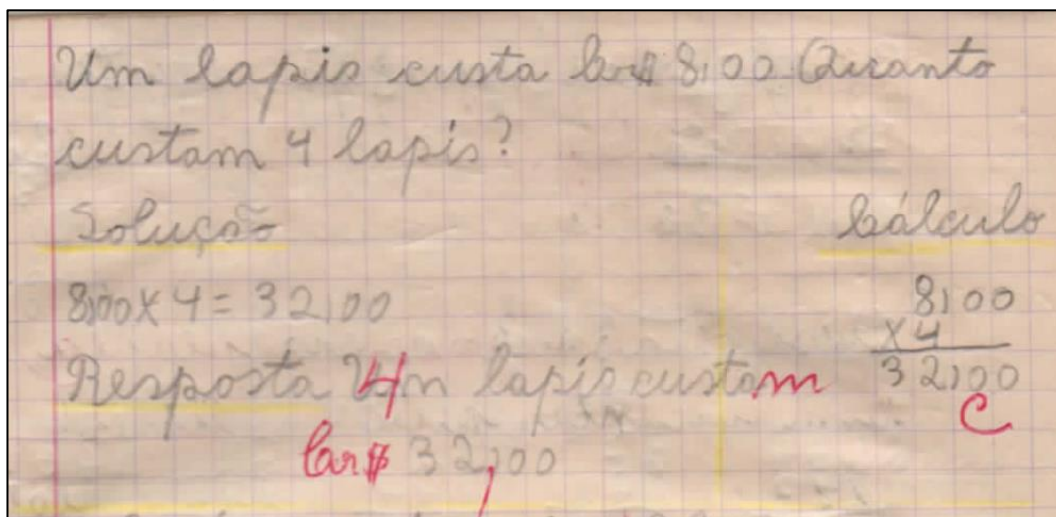 Um lapis custa Cr$ 8,00 Quanto
custam 4 lapis?
Solução
Cálculo
8,00 x 4 = 32,00
8,00
x 4
32,00
C
Resposta 4 lapis custam
Cr$ 32,00